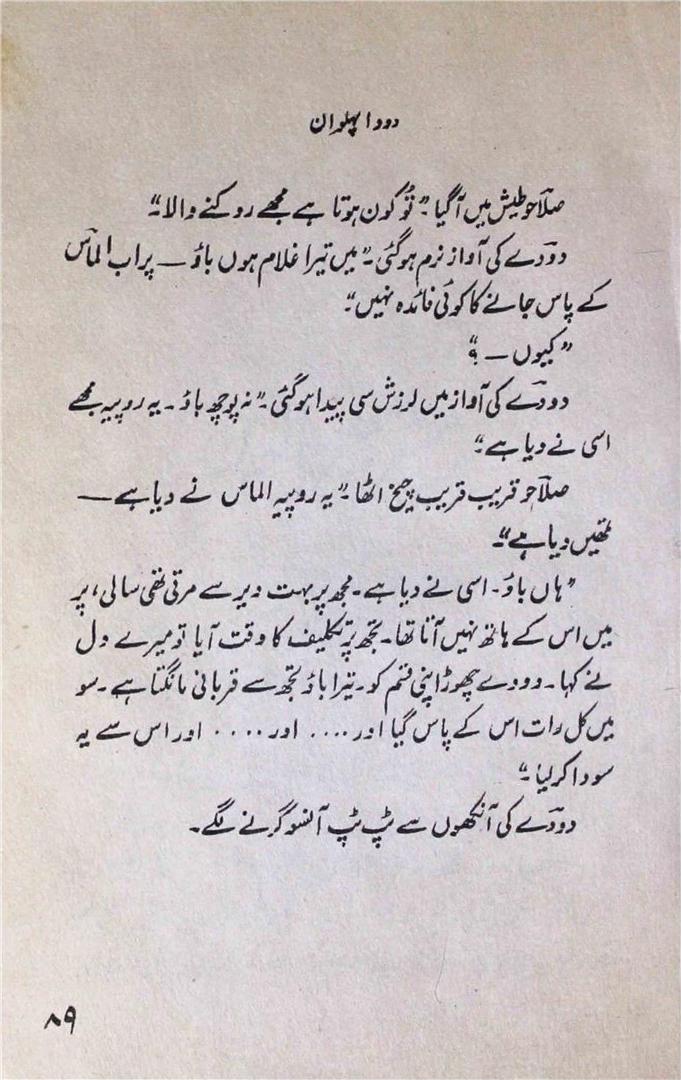 دودا پہلوان
صلاحو طیش میں آ گیا۔ "تُو کون ہوتا ہے مجھے روکنے والا۔"
دودے کی آواز نرم ہو گئی۔ "میں تیرا غلام ہوں باؤ — پر اب الماس
کے پاس جانے کا کوئی فائدہ نہیں۔"
"کیوں — ؟"
دودے کی آواز میں لرزش سی پیدا ہو گئی۔ "نہ پوچھ باؤ۔ یہ روپیہ مجھے
اسی نے دیا ہے۔"
صلاحو قریب قریب چیخ اٹھا۔ "یہ روپیہ الماس نے دیا ہے —
تمھیں دیا ہے"۔
"ہاں باؤ۔ اسی نے دیا ہے۔ مجھ پر بہت دیر سے مرتی تھی سالی، پر
میں اس کے ہاتھ نہیں آتا تھا۔ تجھ پر تکلیف کا وقت آیا تو میرے دل
نے کہا۔ دودے چھوڑ اپنی قسم کو۔ تیرا باؤ تجھ سے قربانی مانگتا ہے۔ سو
میں کل رات اس کے پاس گیا اور .... اور .... اور اس سے یہ
سودا کر لیا۔"
دودے کی آنکھوں سے ٹپ ٹپ آنسو گرنے لگے۔
۸۹